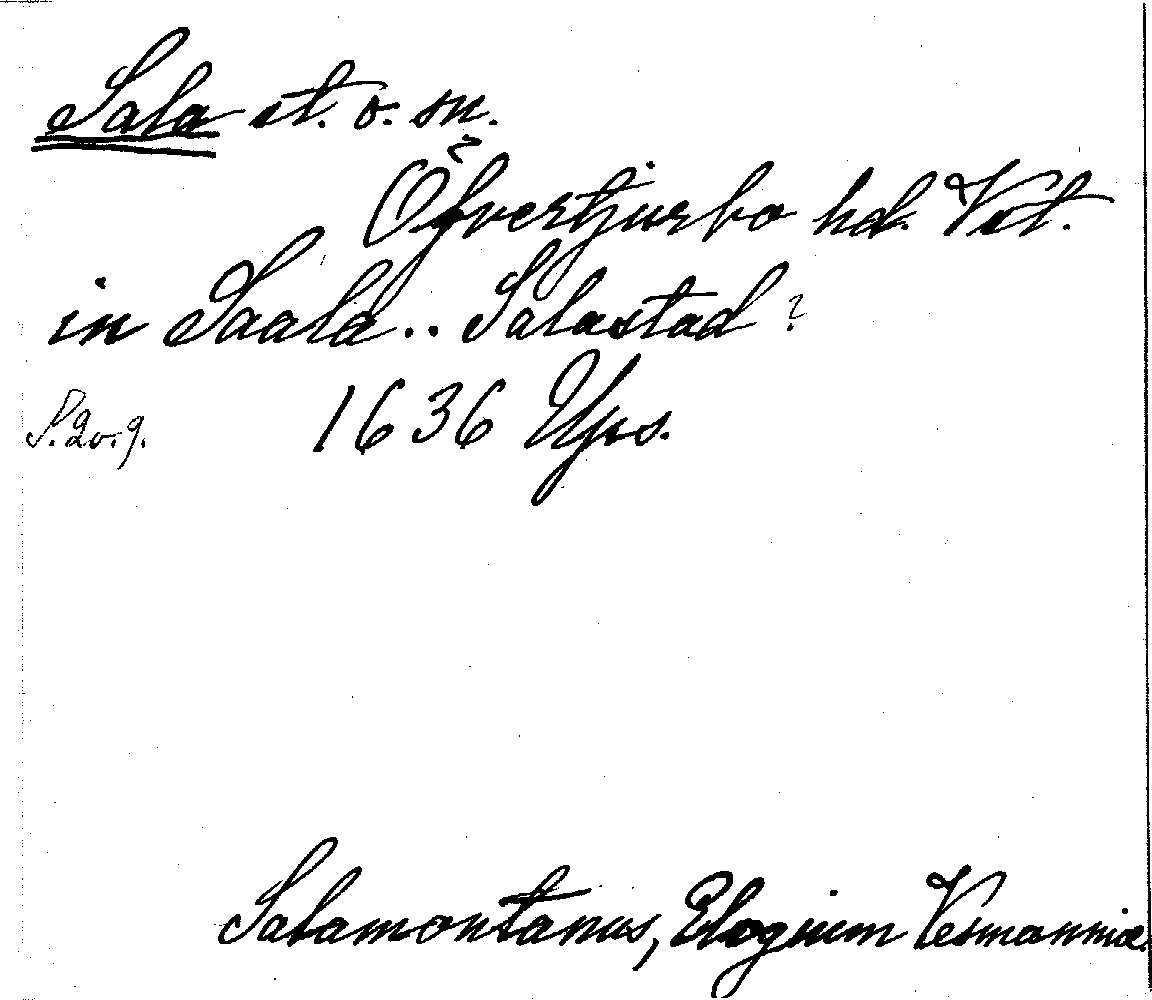 Sala st. o. sn.
Öfvertjurbo hd. Vst.
in Saala.. Salastad?
S. 20. 9. 1636 Ups.
Salamontanus, Elogium Vesmanniæ.